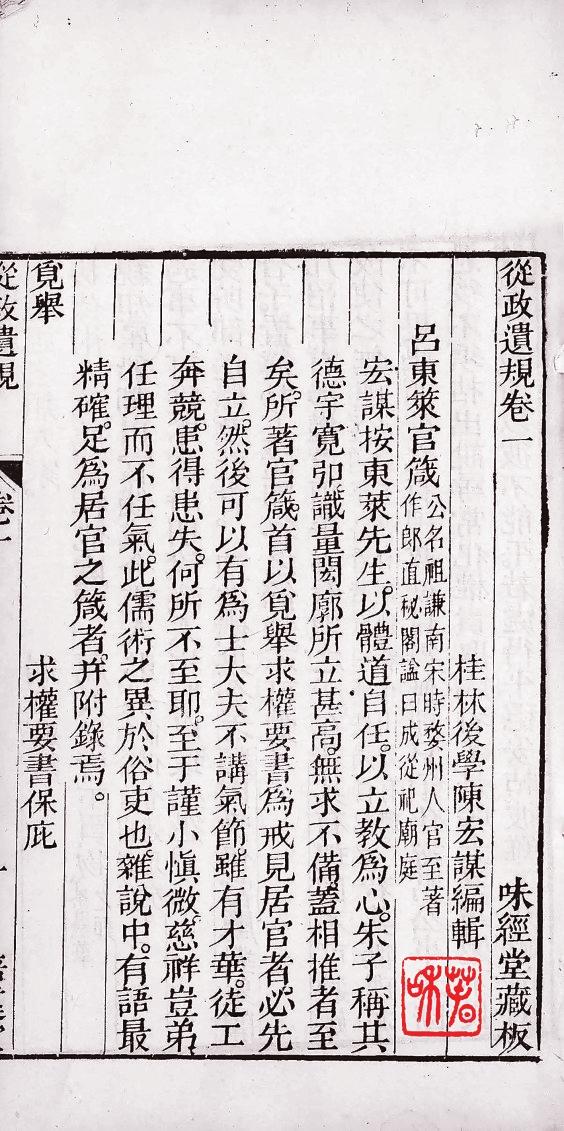 從政遺規卷一
味經堂藏板
桂林後學陳宏謀編輯
呂東萊官箴 公名祖謙南宋時婺州人官至著
作郎直秘閣諡曰成從祀廟庭
宏謀按東萊先生。以體道自任。以立教為心。朱子稱其
德宇寬弘識量閎廓所立甚高。無求不備。蓋相推者至
矣。所著官箴。首以覓舉求權要書為戒見居官者。必先
自立。然後可以有為士大夫不講氣節。雖有才華。徒工
奔競。患得患失。何所不至耶。至于謹小慎微。慈祥豈弟。
任理而不任氣。此儒術之異於俗吏也。雜說中。有語最
精確。足為居官之箴者。并附錄焉。
覓舉
求權要書保庇
從政遺規
卷一
一